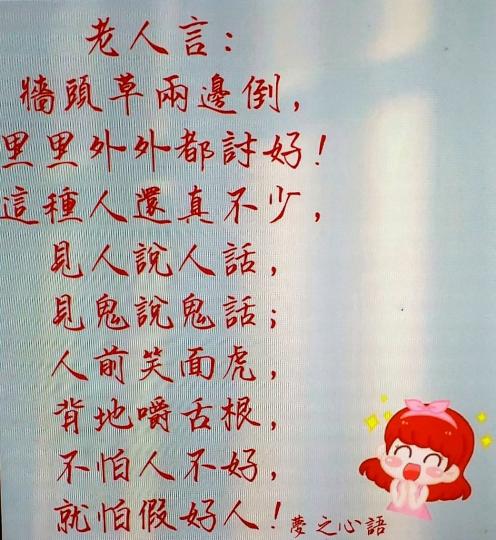 老人言：
牆頭草兩邊倒，
里里外外都討好！
這種人還真不少，
見人說人話，
見鬼說鬼話；
人前笑面虎，
背地嚼舌根，
不怕人不好，
就怕假好人！夢之心語